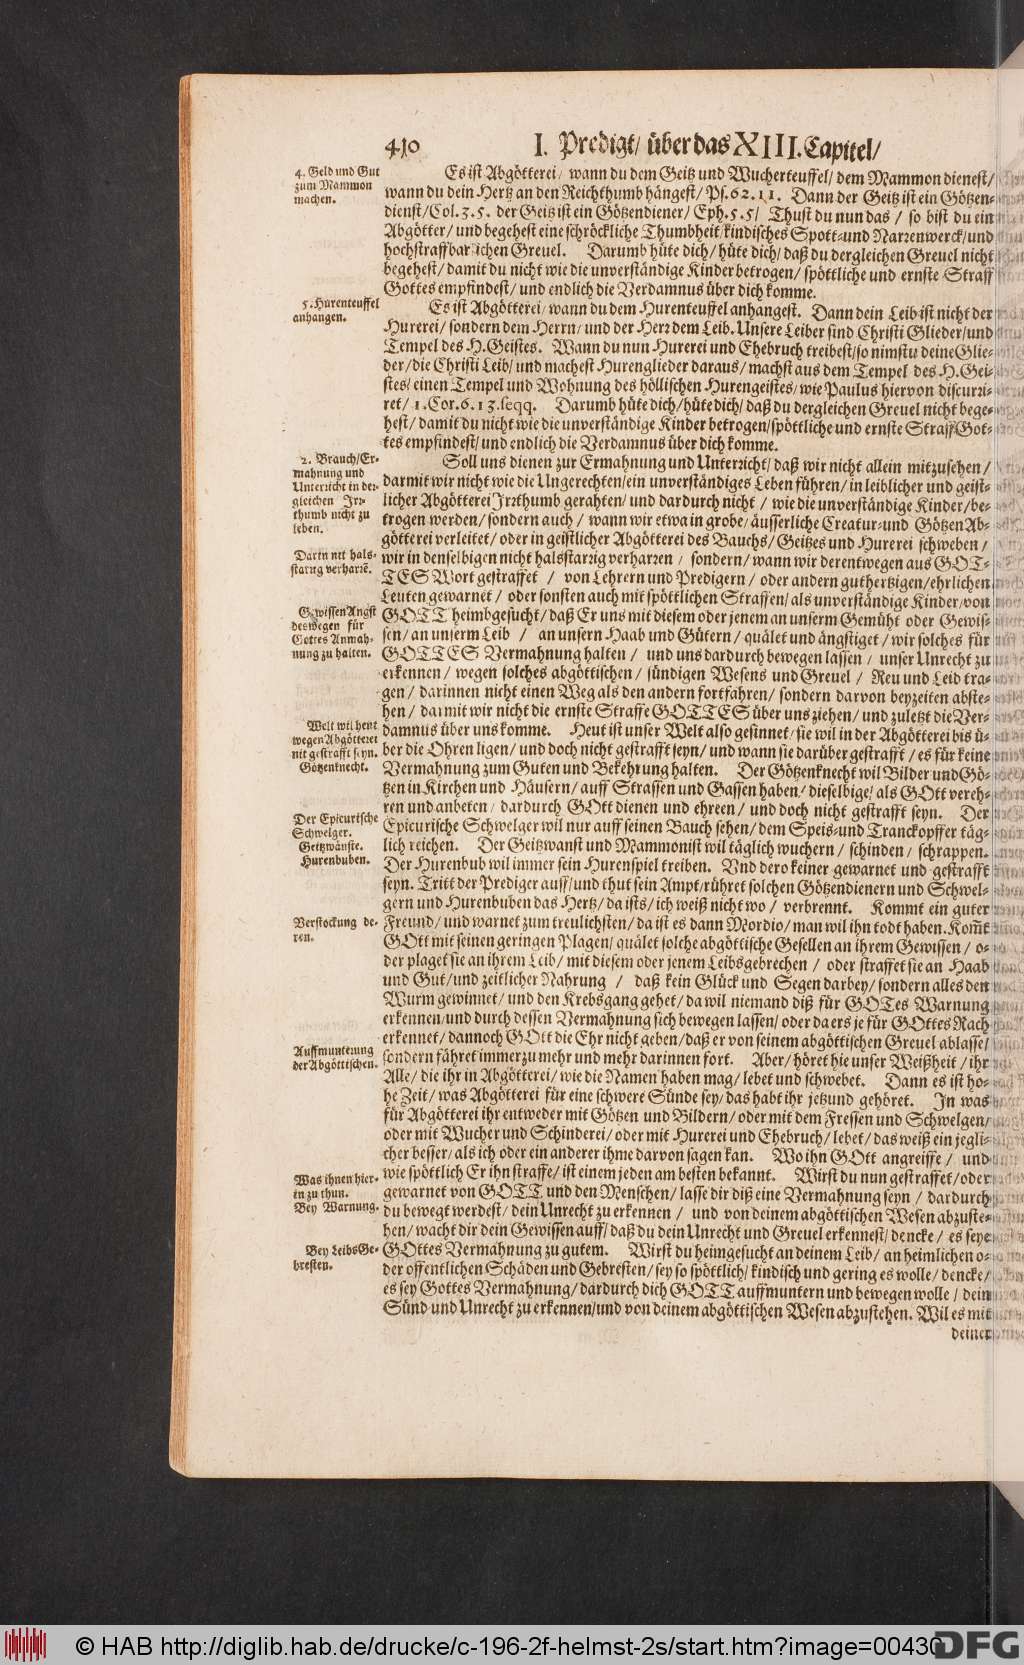 410 I. Predigt/ über das XIII. Capitel/
4. Geld und Gut
zum Mammon
machen.
Es ist Abgötterei/ wann du dem Geitz und Wucherteuffel/ dem Mammon dienest/
wann du dein Hertz an den Reichthumb hängest/ Ps. 62. 11. Dann der Geitz ist ein Götzen-
dienst/ Col. 3. 5. der Geitz ist ein Götzendiener/ Eph. 5. 5/ Thust du nun das / so bist du ein
Abgötter/ und begehest eine schröckliche Thumbheit/ kindisches Spott- und Narrenwerck/ und
hochstraffbarlichen Greuel. Darumb hüte dich/ hüte dich/ daß du dergleichen Greuel nicht
begehest/ damit du nicht wie die unverständige Kinder betrogen/ spöttliche und ernste Straff
Gottes empfindest/ und endlich die Verdamnus über dich komme.
5. Hurenteuffel
anhangen.
Es ist Abgötterei/ wann du dem Hurenteuffel anhangest. Dann dein Leib ist nicht der
Hurerei/ sondern dem Herrn/ und der Herr dem Leib. Unsere Leiber sind Christi Glieder/ und
Tempel des H. Geistes. Wann du nun Hurerei und Ehebruch treibest/ so nimstu deine Glie-
der/ die Christi Leib/ und machest Hurenglieder daraus/ machst aus dem Tempel des H. Gei-
stes/ einen Tempel und Wohnung des höllischen Hurengeistes/ wie Paulus hiervon discurri-
ret/ 1. Cor. 6. 13. seqq. Darumb hüte dich/ hüte dich/ daß du dergleichen Greuel nicht bege-
hest/ damit du nicht wie die unverständige Kinder betrogen/ spöttliche und ernste Straff Got-
tes empfindest/ und endlich die Verdamnus über dich komme.
2. Brauch/ Er-
mahnung und
Unterricht in der-
gleichen Irr-
thumb nicht zu
leben.
Darin nit hals-
starrig verharrē.
Gewissen Angst
deswegen für
Gottes Anmah-
nung zu halten.
Welt wil heut
wegen Abgötterei
nit gestrafft seyn.
Götzenknecht.
Der Epicurische
Schwelger.
Geitzwänste.
Hurenbuben.
Verstockung de-
ren.
Auffmunterung
der Abgöttischen.
Was ihnen hier-
in zu thun.
Bey Warnung.
Bey Leibs Ge-
bresten.
Soll uns dienen zur Ermahnung und Unterricht/ daß wir nicht allein mit zusehen/
darmit wir nicht wie die Ungerechten/ ein unverständiges Leben führen/ in leiblicher und geist-
licher Abgötterei Irrthumb gerahten/ und dardurch nicht / wie die unverständige Kinder/ be-
trogen werden/ sondern auch / wann wir etwa in grobe/ äusserliche Creatur- und Götzen Ab-
götterei verleitet/ oder in geistlicher Abgötterei des Bauchs/ Geitzes und Hurerei schweben/
wir in denselbigen nicht halsstarrig verharren / sondern/ wann wir derentwegen aus GOT-
TES Wort gestraffet / von Lehrern und Predigern / oder andern guthertzigen/ ehrlichen
Leuten gewarnet / oder sonsten auch mit spöttlichen Straffen/ als unverständige Kinder/ von
GOTT heimbgesucht/ daß Er uns mit diesem oder jenem an unserm Gemüht oder Gewis-
sen/ an unserm Leib / an unsern Haab und Gütern/ quälet und ängstiget/ wir solches für
GOTTES Vermahnung halten / und uns dardurch bewegen lassen / unser Unrecht zu
erkennen/ wegen solches abgöttischen/ sündigen Wesens und Greuel / Reu und Leid tra-
gen/ darinnen nicht einen Weg als den andern fortfahren/ sondern darvon beyzeiten abste-
hen/ darmit wir nicht die ernste Straffe GOTTES über uns ziehen/ und zuletzt die Ver-
damnus über uns komme. Heut ist unser Welt also gesinnet/ sie wil in der Abgötterei bis ü-
ber die Ohren ligen/ und doch nicht gestrafft seyn/ und wann sie darüber gestrafft / es für keine
Vermahnung zum Guten und Bekehrung halten. Der Götzenknecht wil Bilder und Gö-
tzen in Kirchen und Häusern/ auff Strassen und Gassen haben/ dieselbige/ als GOtt vereh-
ren und anbeten/ dardurch GOtt dienen und ehreen/ und doch nicht gestrafft seyn. Der
Epicurische Schwelger wil nur auff seinen Bauch sehen/ dem Speis- und Tranckopffer täg-
lich reichen. Der Geitzwanst und Mammonist wil täglich wuchern/ schinden/ schrappen.
Der Hurenbub wil immer sein Hurenspiel treiben. Und dero keiner gewarnet und gestrafft
seyn. Tritt der Prediger auff/ und thut sein Ampt/ rühret solchen Götzendienern und Schwel-
gern und Hurenbuben das Hertz/ da ists/ ich weiß nicht wo / verbrennt. Kommt ein guter
Freund/ und warnet zum treulichsten/ da ist es dann Mordio/ man wil ihn todt haben. Kom̄t
GOtt mit seinen geringen Plagen/ quälet solche abgöttische Gesellen an ihrem Gewissen/ o-
der plaget sie an ihrem Leib/ mit diesem oder jenem Leibsgebrechen / oder straffet sie an Haab
und Gut/ und zeitlicher Nahrung / daß kein Glück und Segen darbey/ sondern alles den
Wurm gewinnet/ und den Krebsgang gehet/ da wil niemand diß für GOTes Warnung
erkennen/ und durch dessen Vermahnung sich bewegen lassen/ oder da ers je für GOttes Rach
erkennet/ dannoch GOtt die Ehr nicht geben/ daß er von seinem abgöttischen Greuel ablasse/
sondern fähret immerzu mehr und mehr darinnen fort. Aber/ höret hie unser Weißheit/ ihr
Alle/ die ihr in Abgötterei/ wie die Namen haben mag/ lebet und schwebet. Dann es ist ho-
he Zeit/ was Abgötterei für eine schwere Sünde sey/ das habt ihr jetzund gehöret. In was
für Abgötterei ihr entweder mit Götzen und Bildern/ oder mit dem Fressen und Schwelgen/
oder mit Wucher und Schinderei/ oder mit Hurerei und Ehebruch/ lebet/ das weiß ein jegli-
cher besser/ als ich oder ein anderer ihme darvon sagen kan. Wo ihn GOtt angreiffe/ und
wie spöttlich Er ihn straffe/ ist einem jeden am besten bekannt. Wirst du nun gestraffet/ oder
gewarnet von GOTT und den Menschen/ lasse dir diß eine Vermahnung seyn / dardurch
du bewegt werdest/ dein Unrecht zu erkennen / und von deinem abgöttischen Wesen abzuste-
hen/ wacht dir dein Gewissen auff/ daß du dein Unrecht und Greuel erkennest/ dencke/ es seye
GOttes Vermahnung zu gutem. Wirst du heimgesucht an deinem Leib/ an heimlichen o-
der offentlichen Schäden und Gebresten/ sey so spöttlich/ kindisch und gering es wolle/ dencke/
es sey Gottes Vermahnung/ dardurch dich GOTT auffmuntern und bewegen wolle / dein
Sünd und Unrecht zu erkennen/ und von deinem abgöttischen Wesen abzustehen. Wil es mit
deiner
© HAB http://diglib.hab.de/drucke/c-196-2f-helmst-2s/start.htm?image=00430
DFG